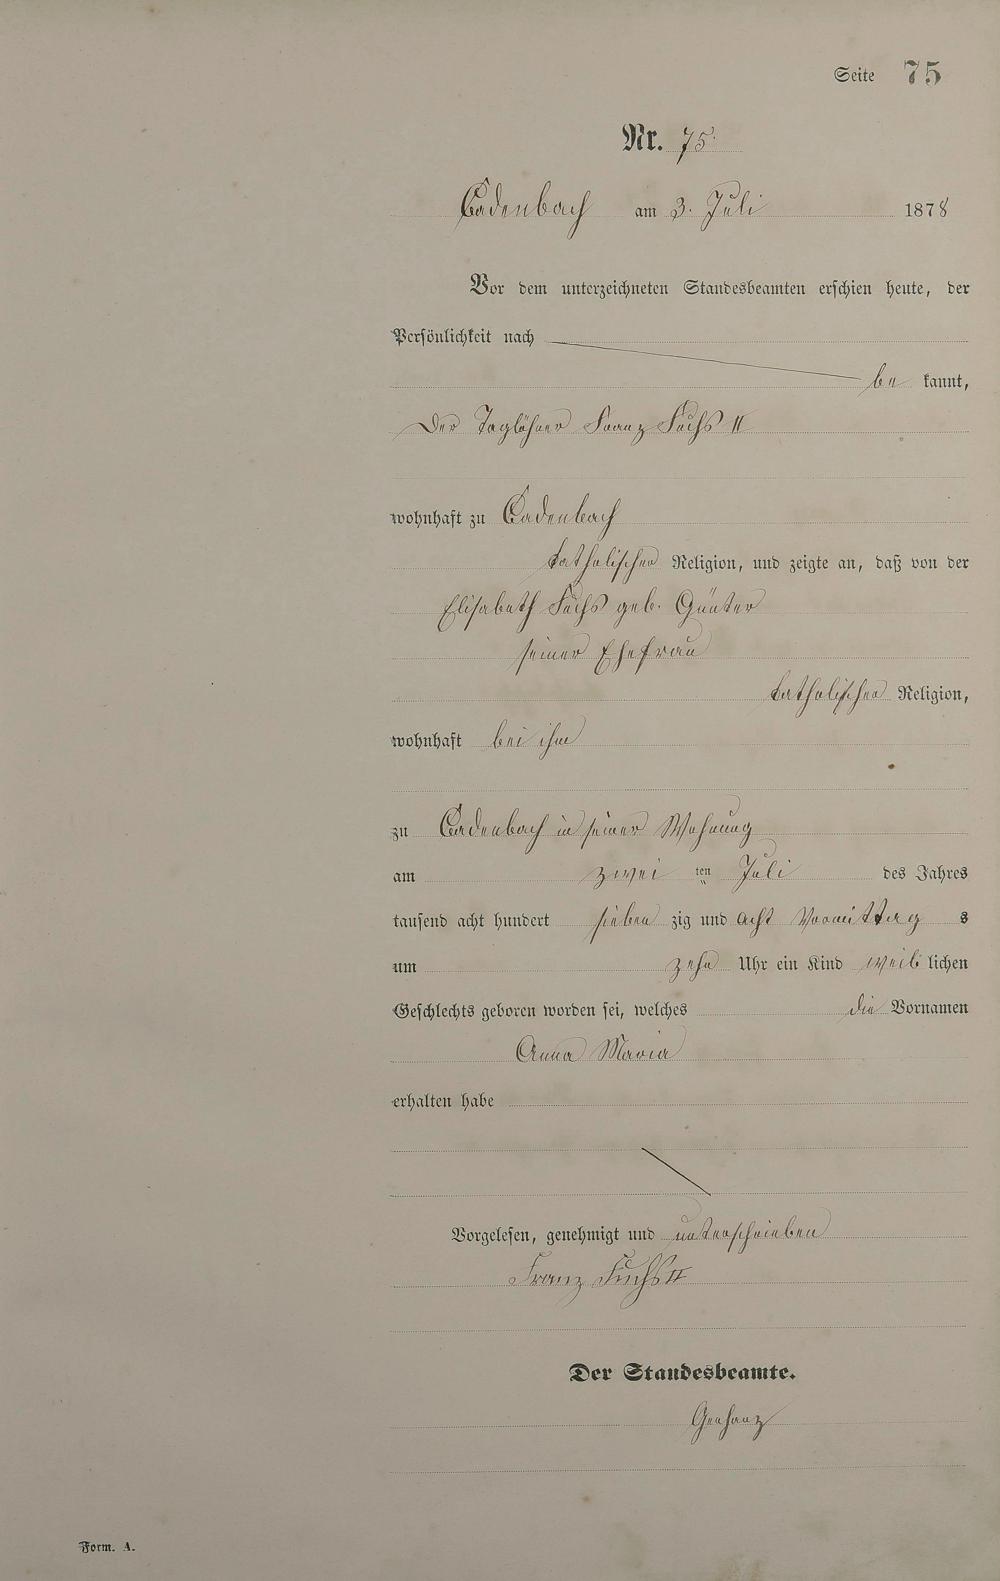 Seite 75
Nr. 75
Cadenbach am 3. Juli 1878
Vor dem unterzeichneten Standesbeamten erschien heute, der
Persönlichkeit nach
be kannt,
Der Taglöhner Franz Fuchs II
wohnhaft zu Cadenbach
katholischer Religion, und zeigte an, daß von der
Elisabeth Fuchs geb. Günter
seiner Ehefrau
katholischer Religion,
wohnhaft bei ihm
zu Cadenbach in seiner Wohnung
am zwei ten Juli des Jahres
tausend acht hundert sieben zig und acht Vormittag s
um zehn Uhr ein Kind weib lichen
Geschlechts geboren worden sei, welches die Vornamen
Anna Maria
erhalten habe
Vorgelesen, genehmigt und unterschrieben
Franz Fuchs II
Der Standesbeamte.
Form. A.